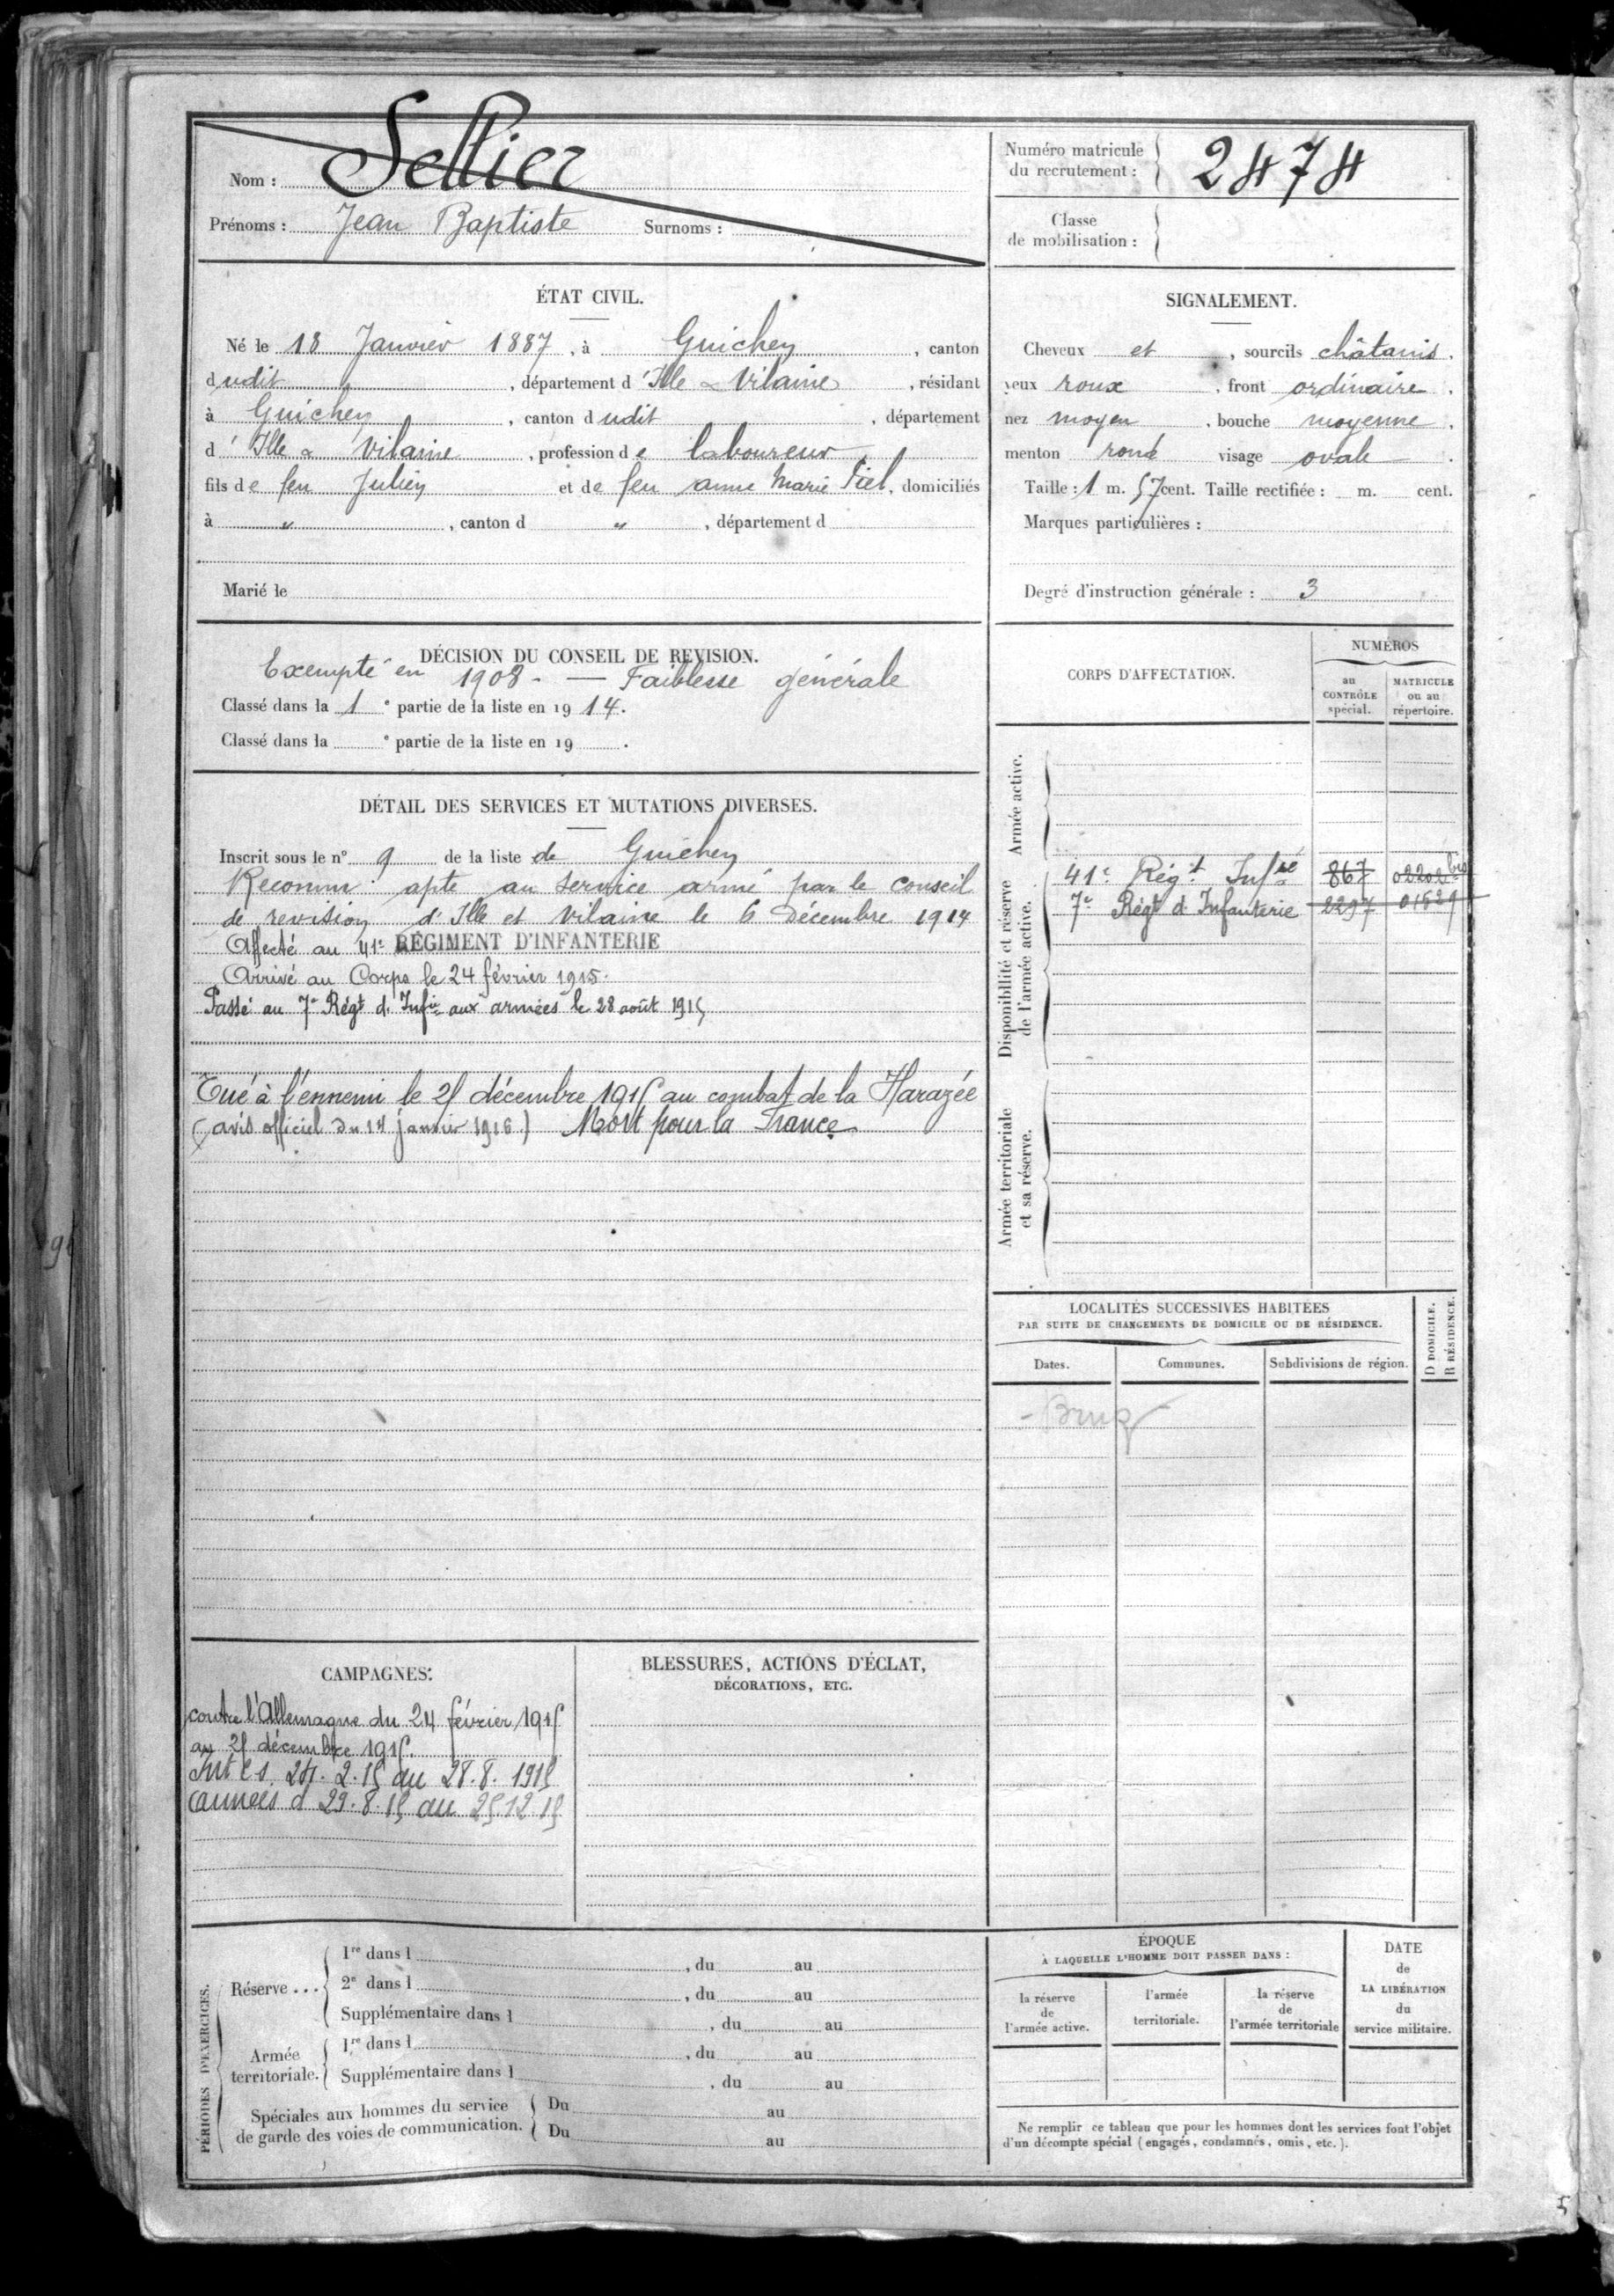 Nom : Sellier
Prénoms : Jean Baptiste Surnoms :
Numéro matricule
du recrutement : 2474
Classe
de mobilisation :
ÉTAT CIVIL.
Né le 18 Janvier 1887, à Guichen, canton
dudit, département d'Ille & Vilaine, résidant
à Guichen, canton dudit, département
d'Ille & Vilaine, profession de laboureur
fils de feu Julien et de feu Anne Marie Piel, domiciliés
à ", canton d ", département d
Marié le
SIGNALEMENT.
Cheveux et, sourcils châtains.
yeux roux, front ordinaire.
nez moyen, bouche moyenne.
menton rond visage ovale.
Taille : 1 m. 57 cent. Taille rectifiée : m. cent.
Marques particulières :
Degré d'instruction générale : 3
DÉCISION DU CONSEIL DE REVISION.
Exempté en 1908 - — Faiblesse générale
Classé dans la 1e partie de la liste en 1914.
Classé dans la e partie de la liste en 19 .
DÉTAIL DES SERVICES ET MUTATIONS DIVERSES.
Inscrit sous le n° 9 de la liste de Guichen
Reconnu apte au service armé par le conseil
de revision d'Ille et Vilaine le 6 Décembre 1914
Affecté au 41e RÉGIMENT D'INFANTERIE
Arrivé au Corps le 24 février 1915.
Passé au 7e Régt d'Infie aux armées le 28 août 1915
Tué à l'ennemi le 25 décembre 1915 au combat de la Harazée
(avis officiel du 14 janvier 1916) Mort pour la France
CORPS D'AFFECTATION.
NUMÉROS
au
CONTRÔLE
spécial.
MATRICULE
ou au
répertoire.
Armée active.
Disponibilité et réserve
de l'armée active.
41e Régt Infie 867 02202 bis
7e Régt d'Infanterie 2297 01529
Armée territoriale
et sa réserve.
LOCALITÉS SUCCESSIVES HABITÉES
PAR SUITE DE CHANGEMENTS DE DOMICILE OU DE RÉSIDENCE.
Dates.
Communes.
Subdivisions de région.
D DOMICILE.
R RÉSIDENCE.
- Bruz
CAMPAGNES.
contre l'Allemagne du 24 février 1915
au 25 décembre 1915.
Int C S. 24. 2. 15 au 28. 8. 1915
Cannées d 29. 8. 15 au 25 12 15
BLESSURES, ACTIONS D'ÉCLAT,
DÉCORATIONS, ETC.
PÉRIODES D'EXERCICES.
Réserve ...
1re dans l , du au
2e dans l , du au
Supplémentaire dans l , du au
Armée
territoriale.
1re dans l , du au
Supplémentaire dans l , du au
Spéciales aux hommes du service
de garde des voies de communication.
Du au
Du au
ÉPOQUE
À LAQUELLE L'HOMME DOIT PASSER DANS :
la réserve
de
l'armée active.
l'armée
territoriale.
la réserve
de
l'armée territoriale
DATE
de
LA LIBÉRATION
du
service militaire.
Ne remplir ce tableau que pour les hommes dont les services font l'objet
d'un décompte spécial (engagés, condamnés, omis, etc.).